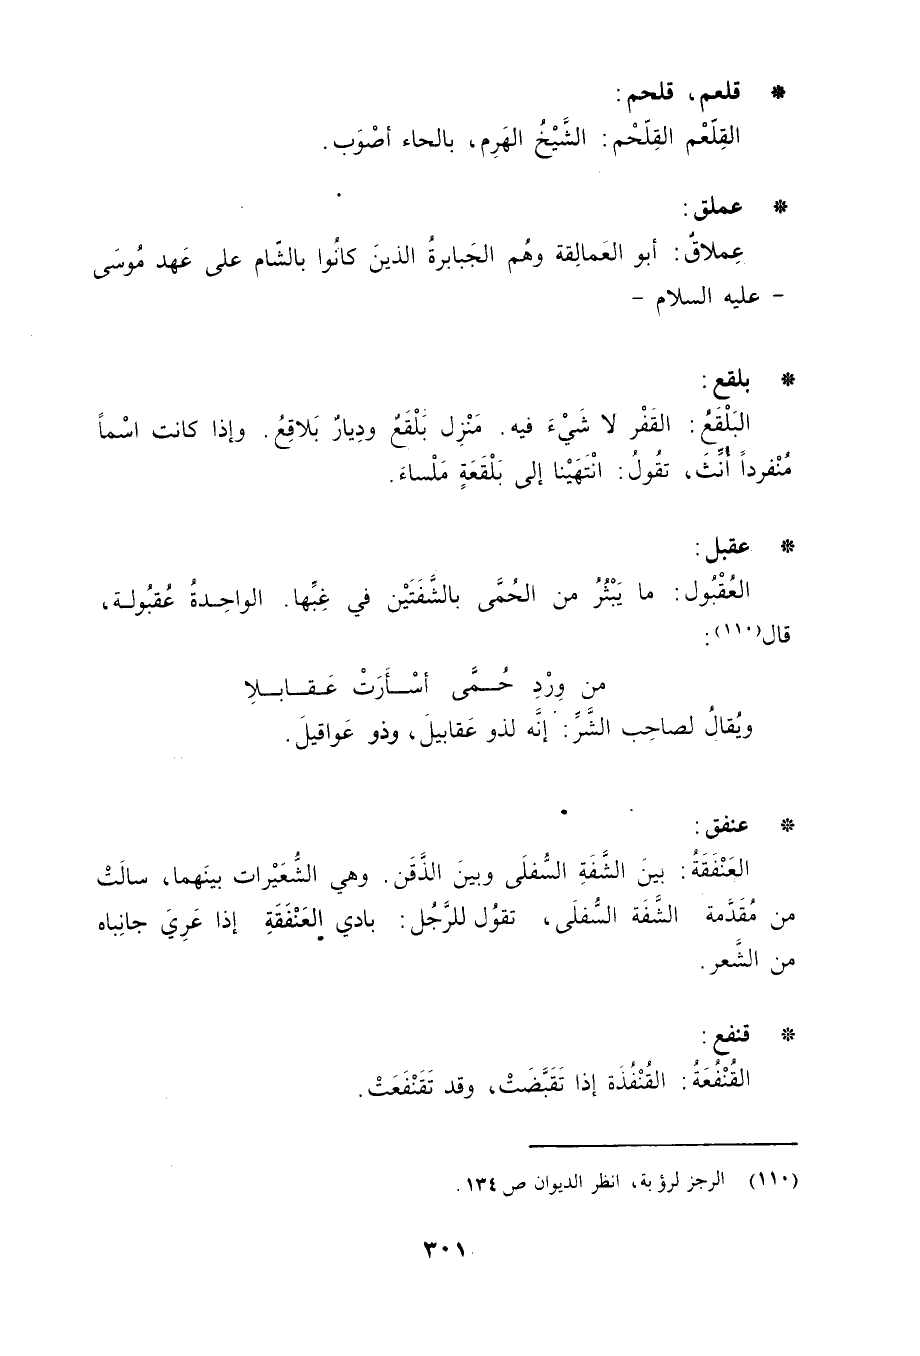 * قلعم، قلحم:
القِلّعْم القِلّحْم: الشَّيْخُ الهَرِم، بالحاء أصْوَب.
* عملق:
عِملاقٌ: أبو العَمالِقة وهُم الجَبابرةُ الذينَ كانُوا بالشّام على عَهد مُوسَى
- عليه السلام -
* بلقع:
البَلْقَعُ: القَفْر لا شَيْءَ فيه. مَنْزِل بَلْقَعٌ ودِيارٌ بَلاقِعُ. وإذا كانت اسْماً
مُنْفرداً أُنِّثَ، تقُولُ: انْتَهَيْنا إلى بَلْقَعَةٍ مَلْساءَ.
* عقبل:
العُقْبُول: ما يَبْثُرُ من الحُمَّى بالشَّفَتَيْن في غِبِّها. الواحِدةُ عُقبُولة،
قال(١١٠):
من وِرْدِ حُمَّى أسْأَرَتْ عَقابلِا
ويُقالُ لصاحِب الشَّرِّ: إنَّه لذو عَقابيلَ، وذو عَواقيلَ.
* عنفق:
العَنْفَقَةُ: بينَ الشَّفَةِ السُّفلَى وبينَ الذَّقَن. وهي الشُّعَيْرات بينَهما، سالَتْ
من مُقَدَّمة الشَّفَة السُّفلَى، تقوُل للرَّجُل: بادي العَنْفَقَةِ إذا عَرِيَ جانِباه
من الشَّعر.
* قنفع:
القُنْفُعَةُ: القُنْفُذَة إذا تَقَبَّضَتْ، وقد تَقَنْفَعَتْ.
(١١٠) الرجز لرؤبة، انظر الديوان ص ١٣٤.
٣٠١